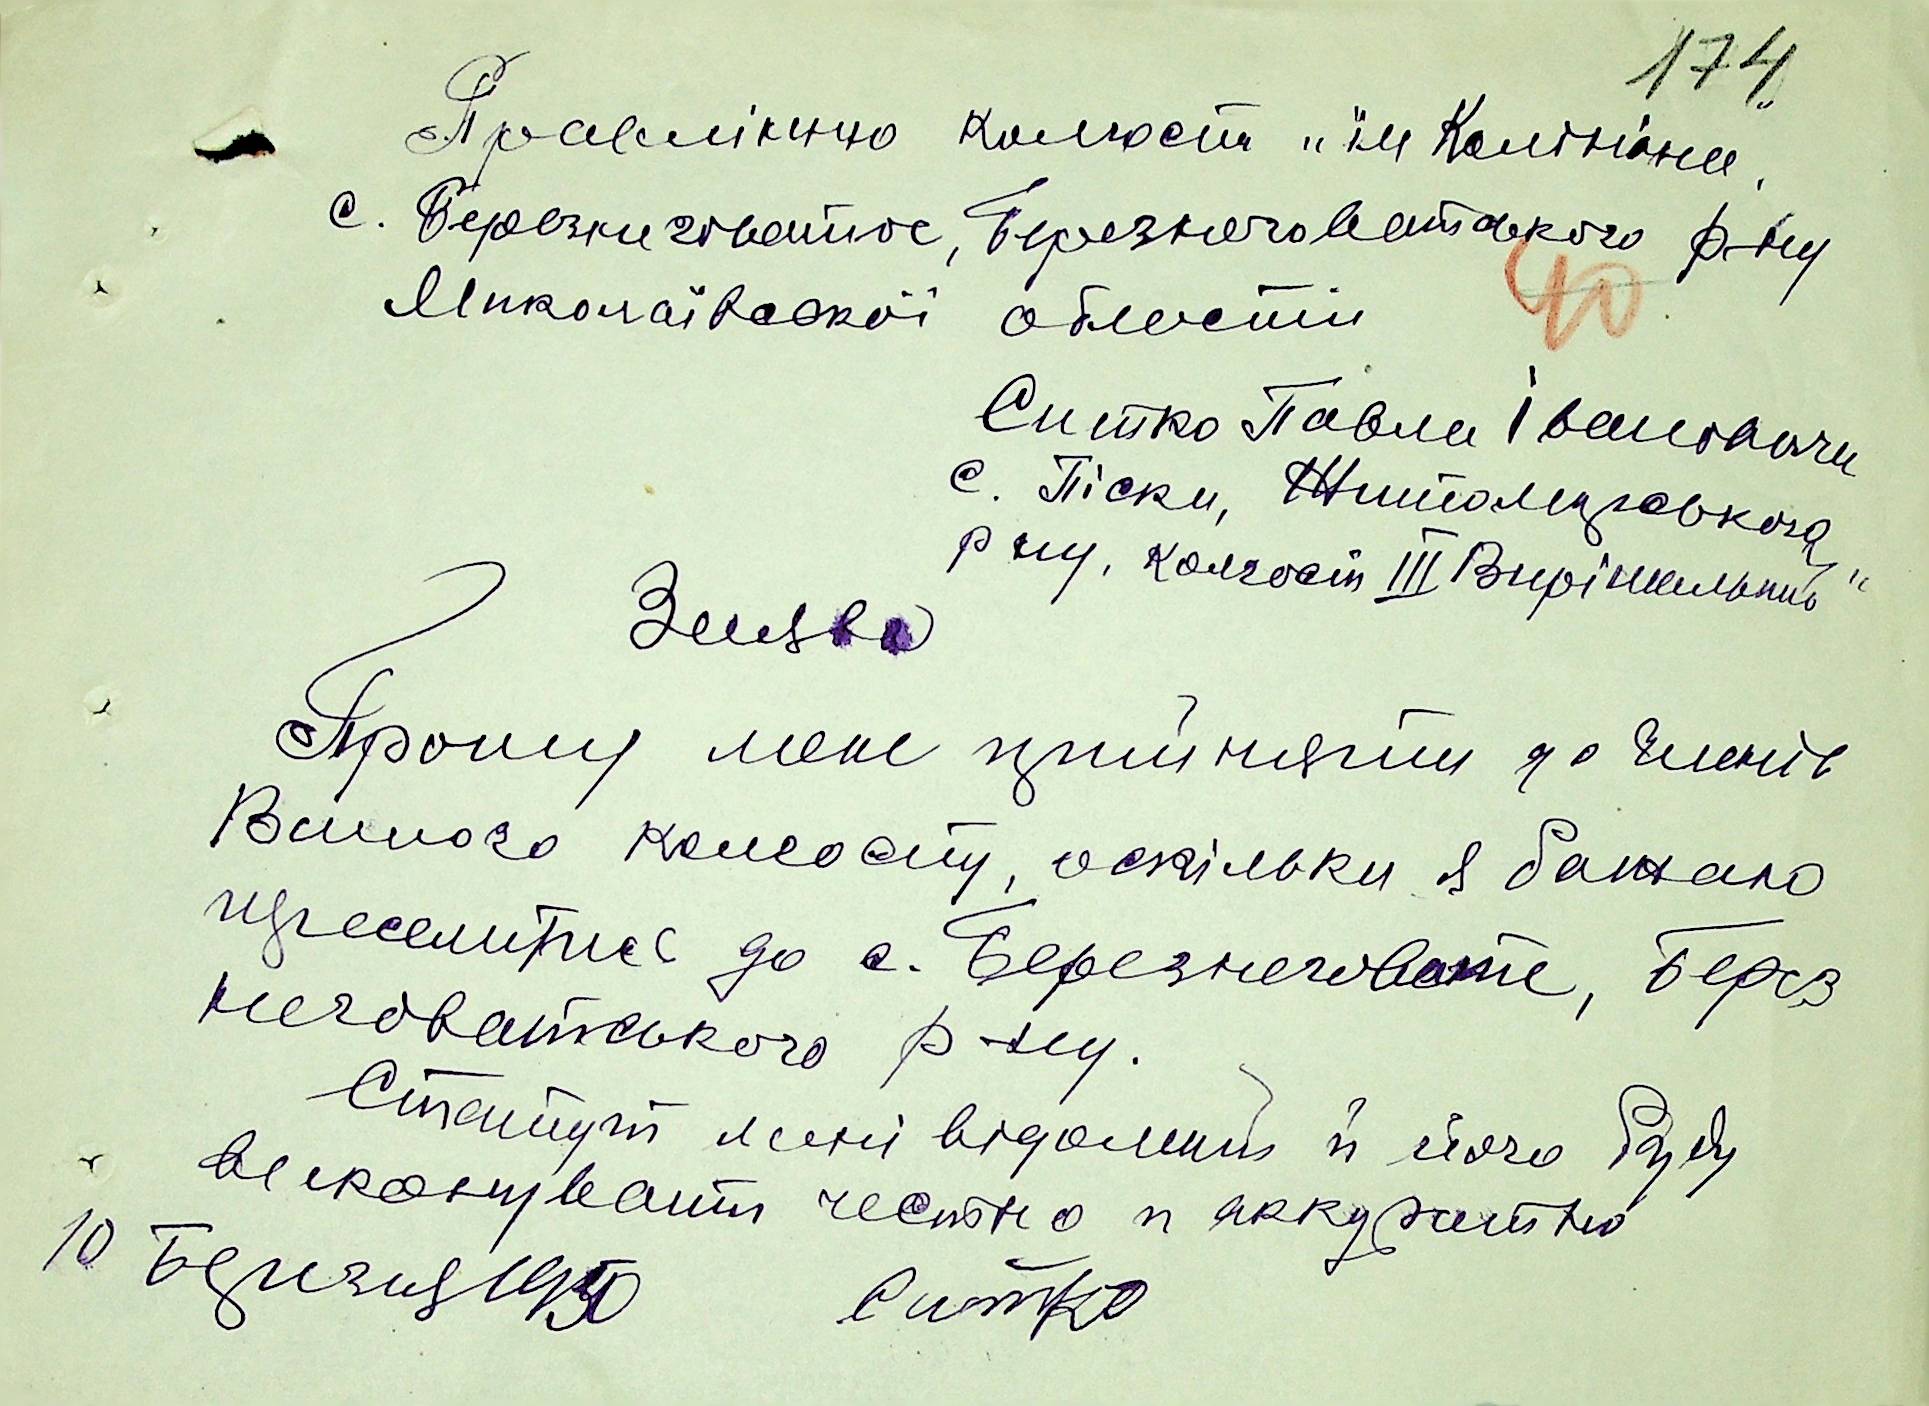 174
Правлінню колгоспу "ім Калініна"
с. Березниговатое, Березнеговатського р-ну
Миколаївської області
40
Ситко Павла Івановича
с. Піски, Житомирського
р ну, колгосп III Вирішальний"
Заява
Прошу мене прийняти до членів
Вашого колгоспу, оскільки я бажаю
переселитись до с. Березнеговате, Берез
неговатського р-ну.
Статут мені відомий й його буду
виконувати чесно и аккуратно
10 Березня 1950 Ситко